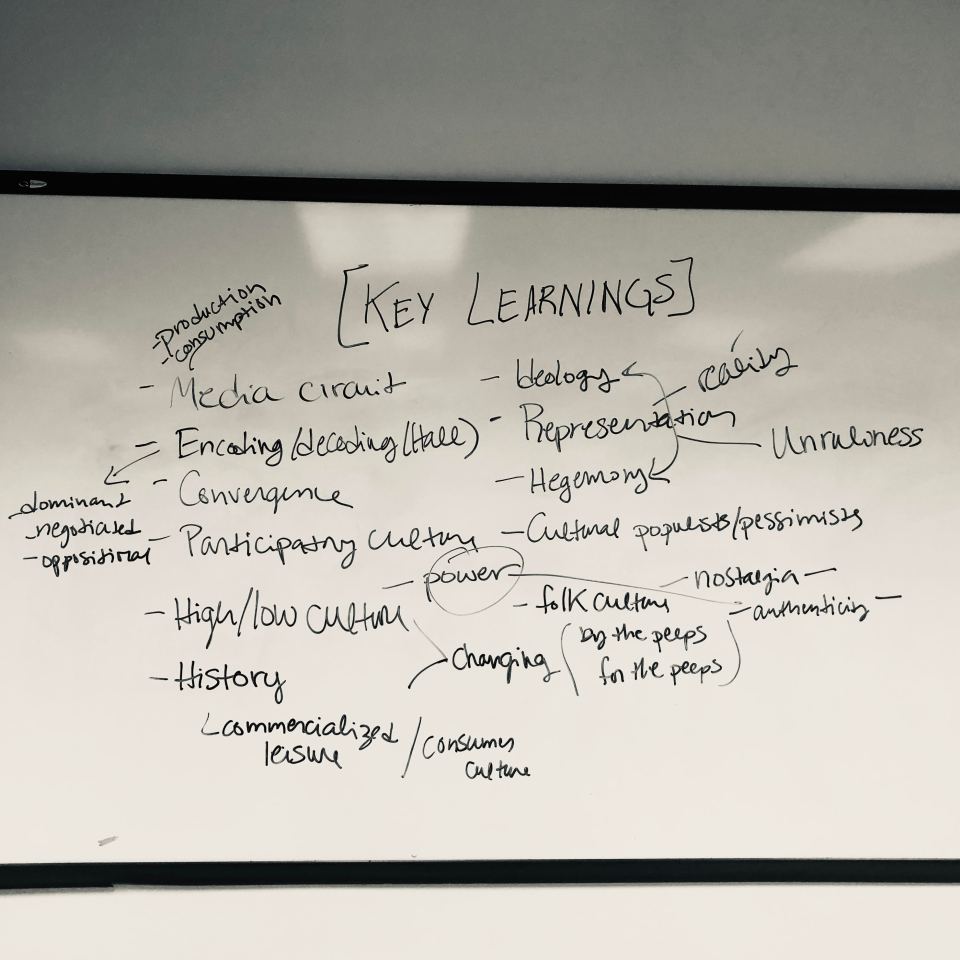 [KEY LEARNINGS]
-production
-consumption
- Media circuit
- Encoding/decoding (Hall)
- dominant
- negotiated
- oppositional
- Convergence
- Participatory culture
- High/low culture
- History
commercialized
leisure
/ consumer
culture
- Ideology
- reality
- Representation
Unruliness
- Hegemony
- Cultural populists/pessimists
- power
- nostalgia -
- authenticity -
- folk culture
(by the peeps
for the peeps)
Changing